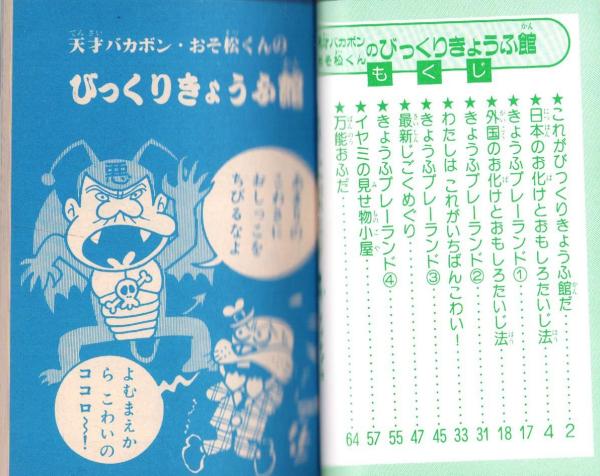 天才バカボン・おそ松くんの
びっくりきょうふ館
悪
あまりの
こわさに
おしっこを
ちびるなよ
よむまえか
ら こわいの
ココロ〜!
天才バカボン
おそ松くん
のびっくりきょうふ館
もくじ
★これがびっくりきょうふ館だ……2
★日本のお化けとおもしろたいじ法……4
★きょうふプレーランド①……17
★外国のお化けとおもしろたいじ法……18
★きょうふプレーランド②……31
★わたしは これがいちばんこわい!……33
★きょうふプレーランド③……45
★最新じごくめぐり……47
★きょうふプレーランド④……55
★イヤミの見せ物小屋……57
★万能おふだ……64